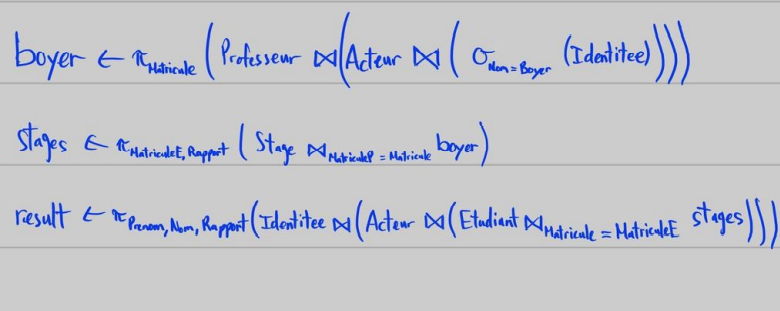 boyer ← π Matricule (Professeur ⋈ (Acteur ⋈ (σ Nom=Boyer (Identitee))))
stages ← π MatriculeE, Rapport (Stage ⋈ MatriculeP = Matricule boyer)
result ← π Prenom, Nom, Rapport (Identitee ⋈ (Acteur ⋈ (Etudiant ⋈ Matricule = MatriculeE stages)))